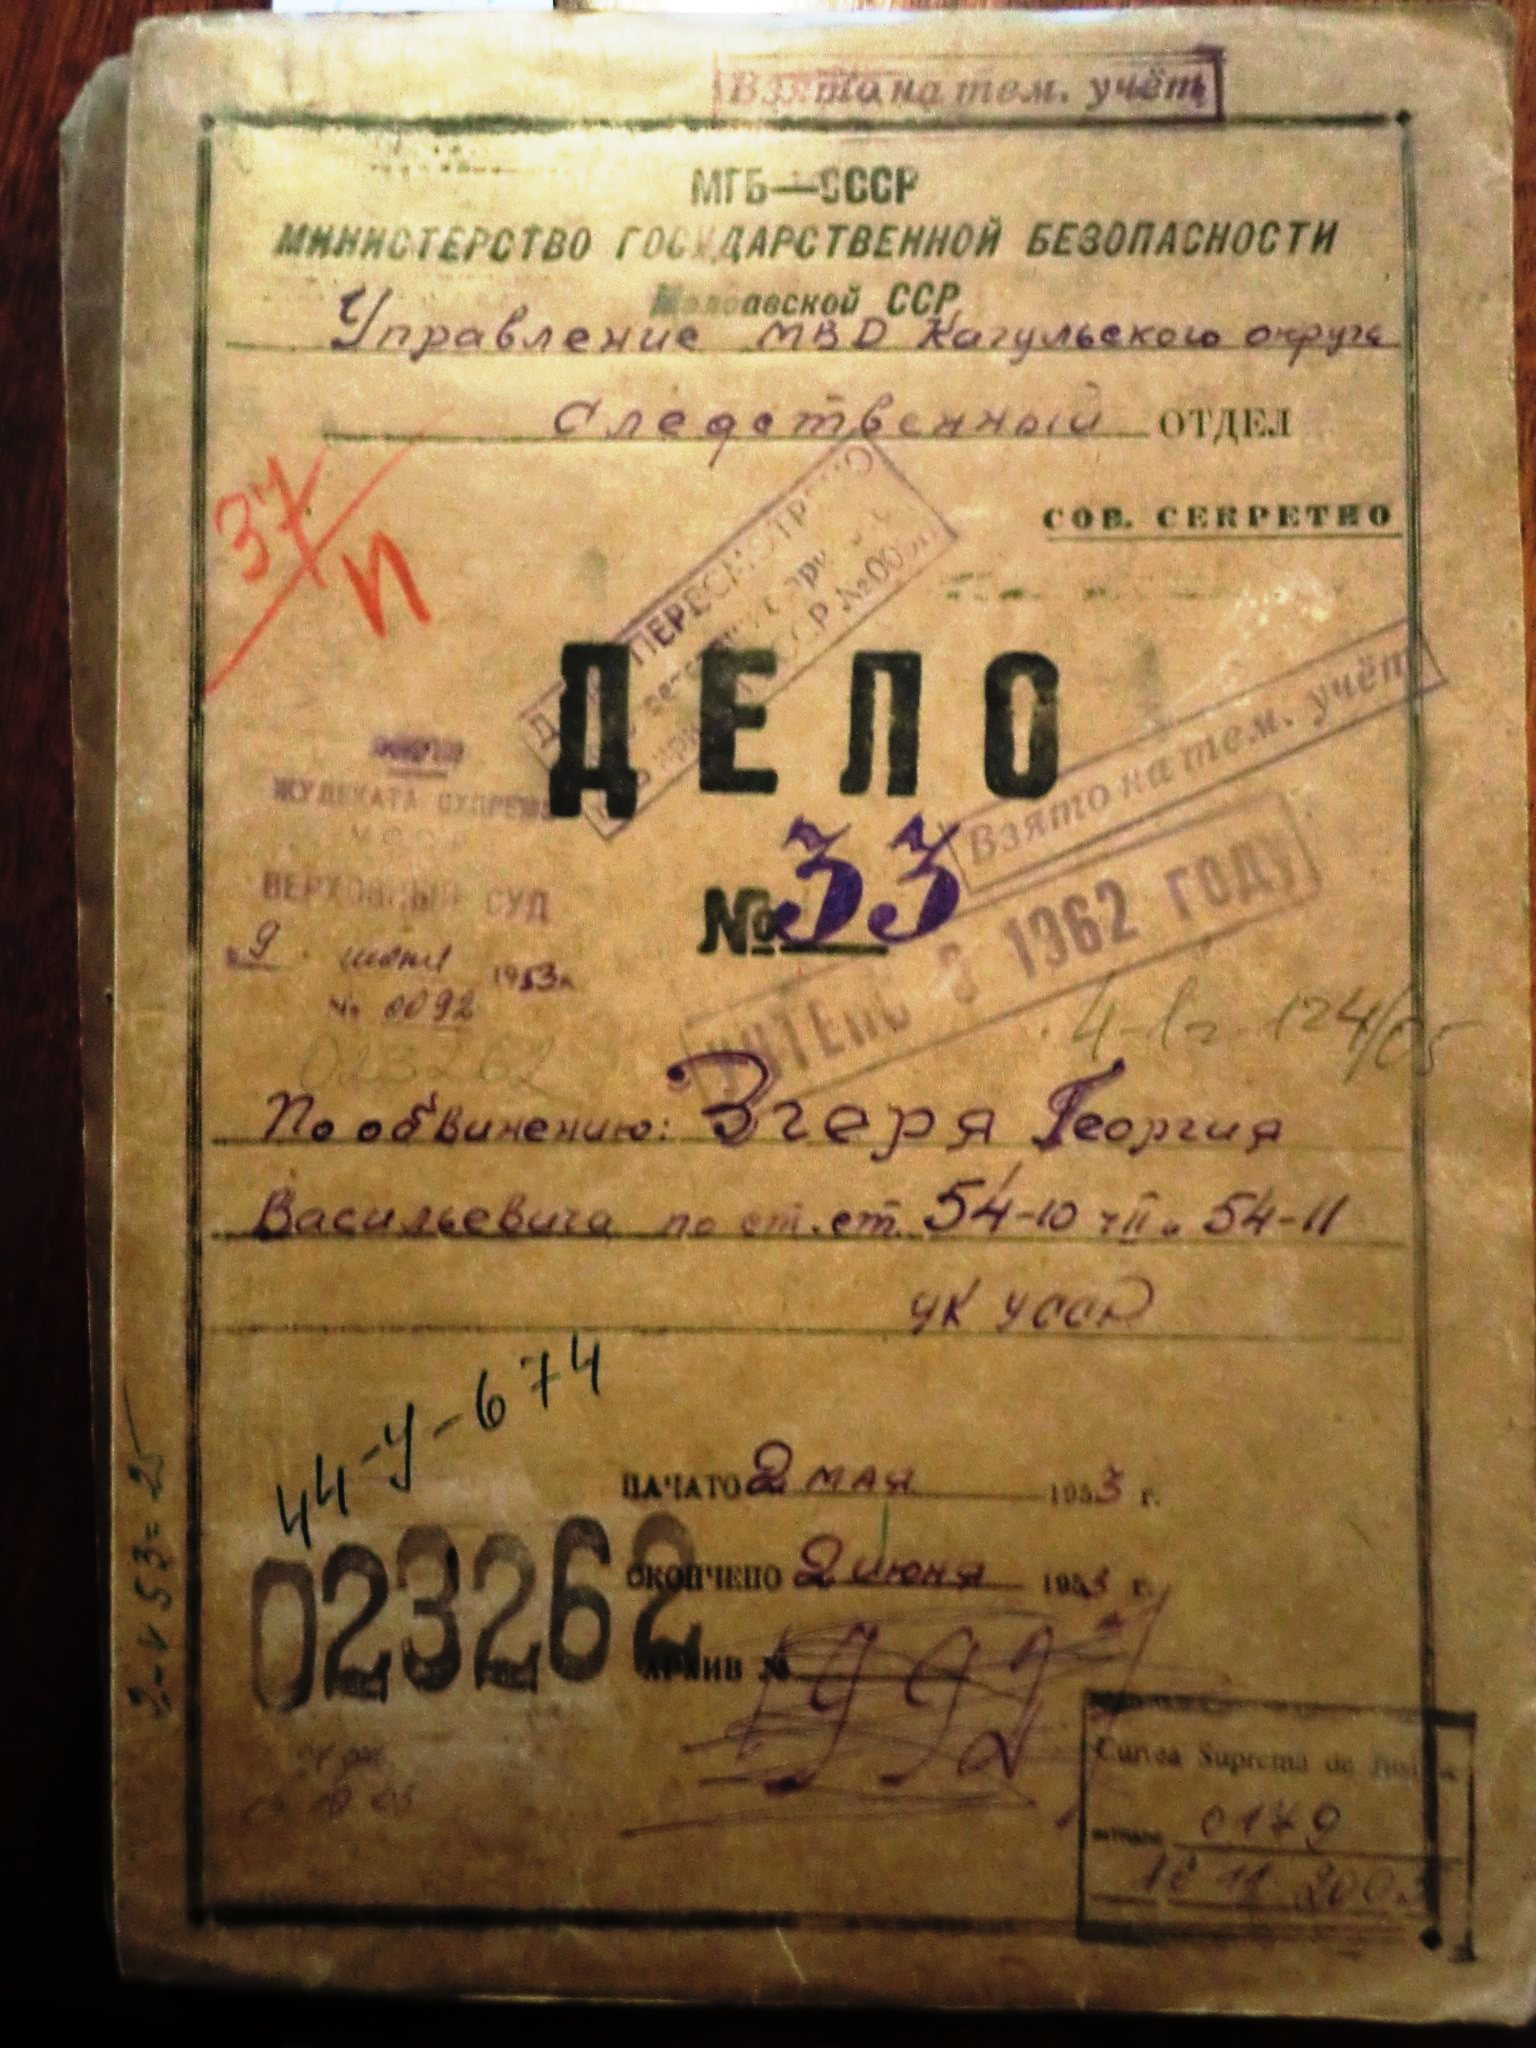 Взято на тем. учёт
МГБ—СССР
МИНИСТЕРСТВО ГОСУДАРСТВЕННОЙ БЕЗОПАСНОСТИ
Молдавской ССР
Управление МВД Кагульского округа
Следственный ОТДЕЛ
37/П
СОВ. СЕКРЕТНО
ПЕРЕСМОТРЕНО
ДЕЛО
Взято на тем. учёт
№ 33
УЧТЕНО В 1962 ГОДУ
ЖУДЕКАТА СУПРЕМЭ
ВЕРХОВНЫЙ СУД
9 июня 1953 г.
№ 0092
023262
По обвинению: Згеря Георгия
Васильевича по ст.ст. 54-10 ч II и 54-11
УК УССР
44-у-674
НАЧАТО 2 мая 1953 г.
ОКОНЧЕНО 2 июня 1953 г.
023262
АРХИВ № 992
Curtea Suprema de
0179